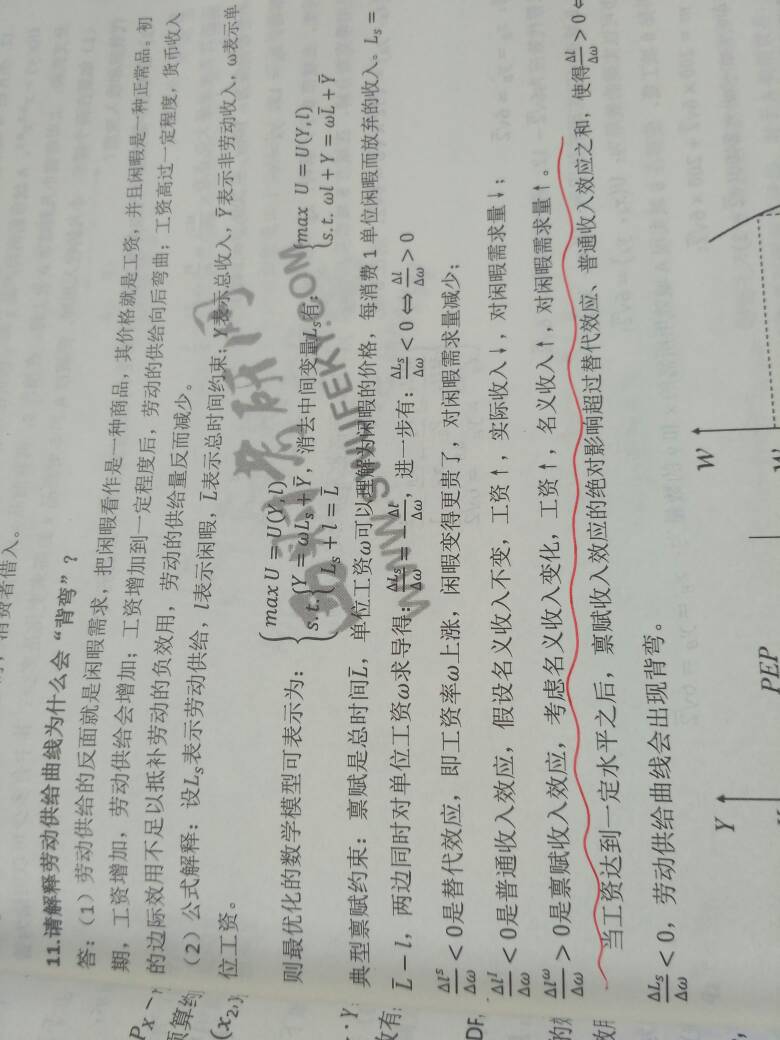 消费者借入。
11.请解释劳动供给曲线为什么会“背弯”？
答：（1）劳动供给的反面就是闲暇需求，把闲暇看作是一种商品，其价格就是工资，并且闲暇是一种正常品。初
期，工资增加，劳动供给会增加；工资增加到一定程度后，劳动的供给向后弯曲；工资高过一定程度，货币收入
的边际效用不足以抵补劳动的负效用，劳动的供给量反而减少。
（2）公式解释：设Lₛ表示劳动供给，l表示闲暇，L̅表示总时间约束；Y表示总收入，Y̅表示非劳动收入，ω表示单
位工资。
则最优化的数学模型可表示为：{max U = U(Y, l) s.t. {Y = ωLₛ + Y̅, Lₛ + l = L̅，消去中间变量Lₛ有：{max U = U(Y, l) s.t. ωl + Y = ωL̅ + Y̅
典型禀赋约束：禀赋是总时间L̅，单位工资ω可以理解为闲暇的价格，每消费 1 单位闲暇而放弃的收入。Lₛ =
L̅ − l，两边同时对单位工资ω求导得：ΔLₛ/Δω = −Δl/Δω，进一步有：ΔLₛ/Δω < 0 ⇔ Δl/Δω > 0
Δlˢ/Δω < 0是替代效应，即工资率ω上涨，闲暇变得更贵了，对闲暇需求量减少；
Δlᴵ/Δω < 0是普通收入效应，假设名义收入不变，工资↑，实际收入↓，对闲暇需求量↓；
Δlᵚ/Δω > 0是禀赋收入效应，考虑名义收入变化，工资↑，名义收入↑，对闲暇需求量↑。
当工资达到一定水平之后，禀赋收入效应的绝对影响超过替代效应、普通收入效应之和，使得Δl/Δω > 0 ⇔
ΔLₛ/Δω < 0，劳动供给曲线会出现背弯。
Y
PEP
W
WWW.SHUIFEKY.COM